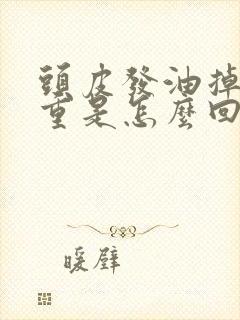 頭皮發油掉
重是怎麼回
暖壁